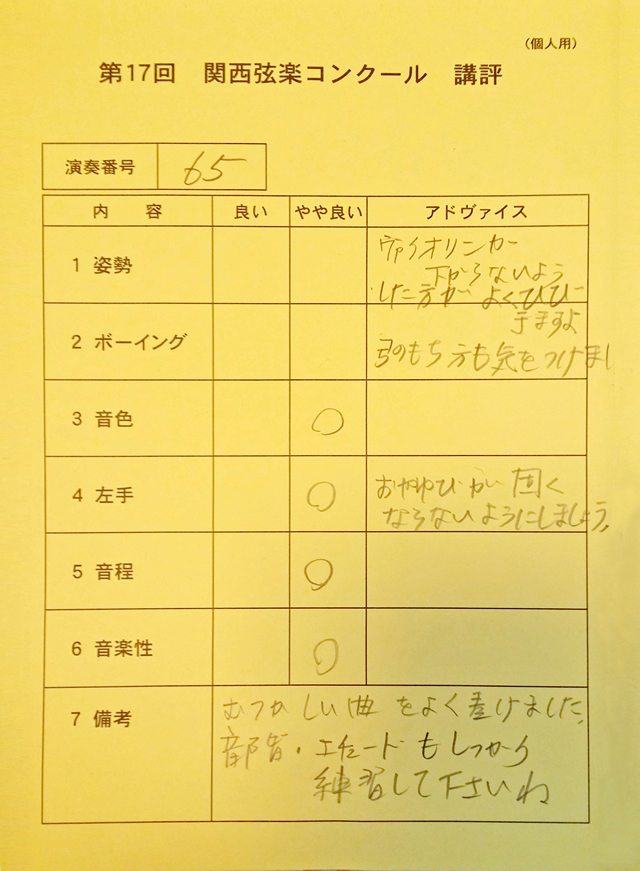 （個人用）
第17回 関西弦楽コンクール 講評
演奏番号 65
内 容 良い やや良い アドヴァイス
1 姿勢
ヴァイオリンが
下がらないよう
した方が よくひび
きますよ
2 ボーイング
弓のもち方も気をつけまし
3 音色 ○
4 左手 ○
おやゆびが 固く
ならないようにしましょう。
5 音程 ○
6 音楽性 ○
7 備考
むつかしい曲をよく弾けました。
音階・エチュードもしっかり
練習して下さいね